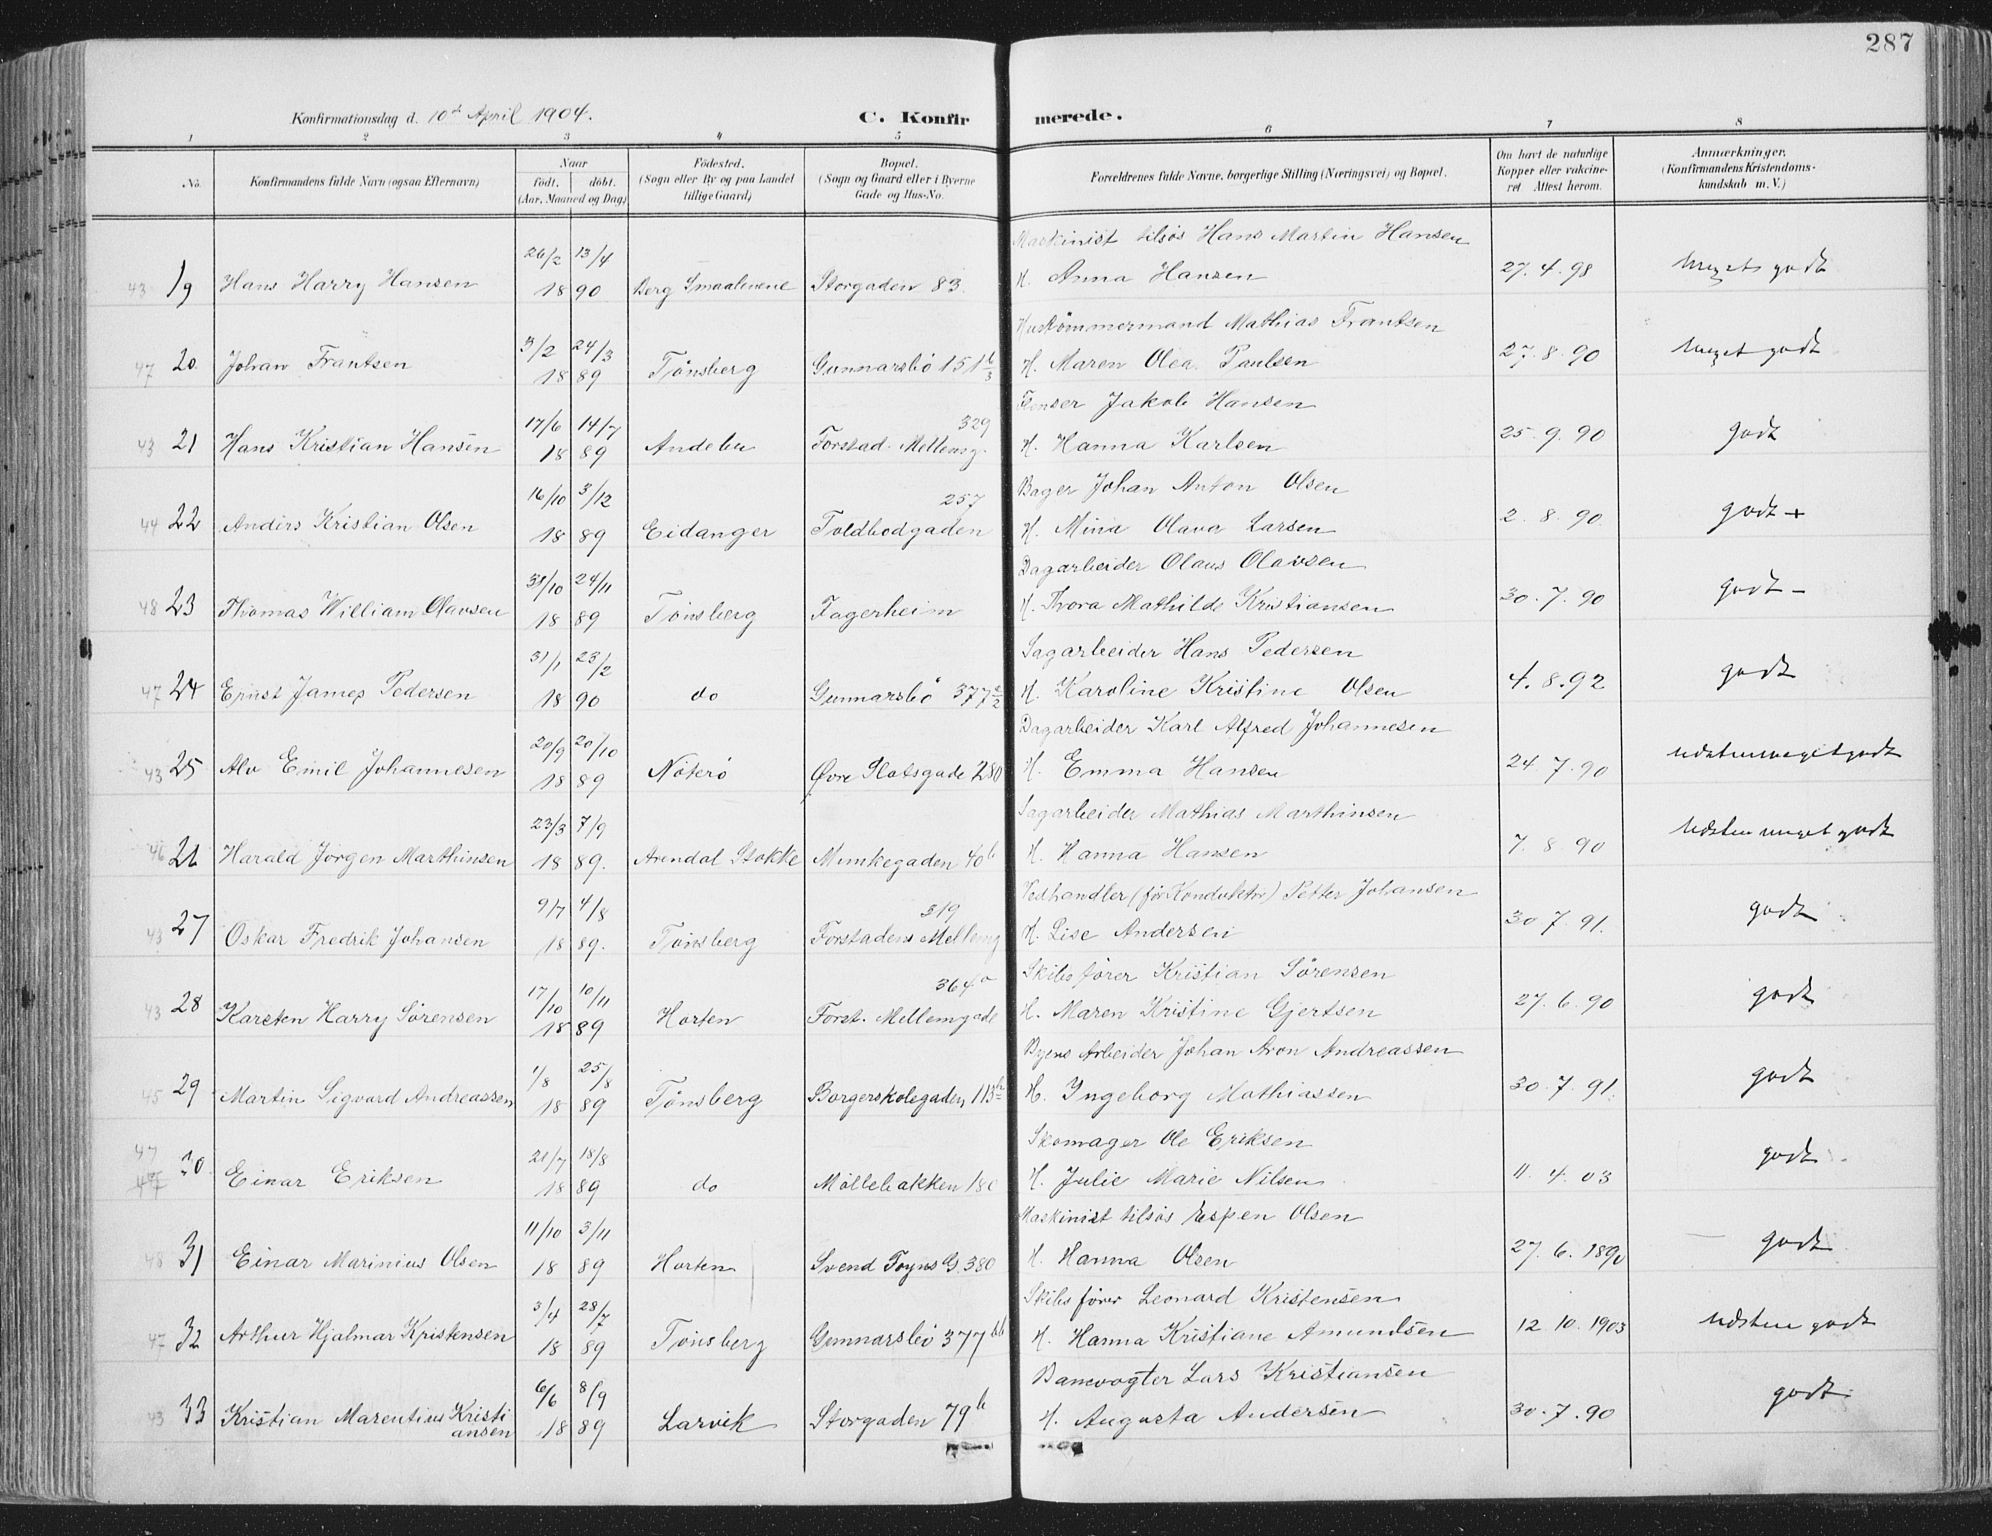 287
Konfirmationsdag d. 10de April 1904.
C. Konfirmerede.
1 2 3 4 5 6 7 8
No. Konfirmandens fulde Navn (ogsaa Efternavn) Naar født. døbt. (Aar, Maaned og Dag) Fødested. (Sogn eller By og paa Landet tillige Gaard) Bopæl. (Sogn og Gaard eller i Byerne Gade og Hus-No. Forældrenes fulde Navne, borgerlige Stilling (Næringsvei) og Bopæl. Om havt de naturlige Kopper eller vakcineret Attest herom. Anmærkninger. (Konfirmandens Kristendomskundskab m. V.)
26/2 13/4 Maskinist tilsøs Hans Martin Hansen
43 19 Hans Harry Hansen 18 90 Berg Smaalenene Storgaden 83. H. Anna Hansen 27.4.98 meget godt
3/2 24/3 Hustømmermand Mathias Frantsen
47 20. Johan Frantsen 18 89 Tønsberg Gunnarsbø 151 b/3 H. Maren Olea Paulsen 27.8.90 meget godt
17/6 14/7 329 Flenser Jakob Hansen
43 21 Hans Kristian Hansen 18 89 Andebu Forstad. Mellemg. H. Hanna Karlsen 25.9.90 godt
16/10 3/12 257 Bager Johan Anton Olsen
44 22 Anders Kristian Olsen 18 89 Eidanger Toldbodgaden H. Mina Olava Larsen 2.8.90. godt +
31/10 24/11 Dagarbeider Olaus Olavsen
48 23 Thomas William Olavsen 18 89 Tønsberg Fagerheim H. Thora Mathilde Kristiansen 30.7.90 godt -
31/1 23/2 Sagarbeider Hans Pedersen
47 24 Ernst James Pedersen 18 90 do Gunnarsbø 377 H. Karoline Kristine Olsen 4.8.92 godt
20/9 20/10 Dagarbeider Karl Alfred Johannesen
43 25 Alv Emil Johannesen 18 89 Nøterø Øvre Slotsgade 280 H. Emma Hansen 24.7.90 udstenmegetgodt
23/3 7/9 Sagarbeider Mathias Marthinsen
46 26 Harald Jørgen Marthinsen 18 89. Arendal Stokke Munkegaden 40b H. Hanna Hansen 7.8 90 udsten meget godt
9/7 4/8 319 Vedhandler (før Konduktør) Petter Johansen
43 27 Oskar Fredrik Johansen 18 89. Tønsberg Forstadens Mellemg H. Lise Andersen 30 7.91. godt
17/10 10/11 364a Skibsfører Kristian Sørensen
43 28 Karsten Harry Sørensen 18 89 Horten Forst. Mellemgade H. Maren Kristine Gjertsen 27.6.90 godt
1/8 25/8 Byens Arbeider Johan Aron Andreassen
45 29 Martin Sigvard Andreassen 18 89 Tønsberg Borgerskolegaden 113b H. Ingeborg Mathiassen 30.7.91. godt
47 21/7 18/8 Skomager Ole Eriksen
30. Einar Eriksen 18 89 do Møllebakken 180 H. Julie Marie Nilsen. 11.4.03 godt
11/10 3/11 Maskinist tilsøs Espen Olsen
48 31 Einar Marinius Olsen 18 89 Horten Svend Foyns G. 380 H. Hanna Olsen 27.6.1890 godt
3/4 28/7 Skibsfører Leonard Kristensen
47 32 Arthur Hjalmar Kristensen 18 89 Tønsberg Gunnarsbø 377bb H. Hanna Kristiane Amundsen 12 10.1903 udsten godt
6/6 8/9 Banevogter Lars Kristiansen
43 33 Kristian Marentius Kristiansen 18 89 Larvik Storgaden 79b H. Augusta Andersen 30.7.90 godt